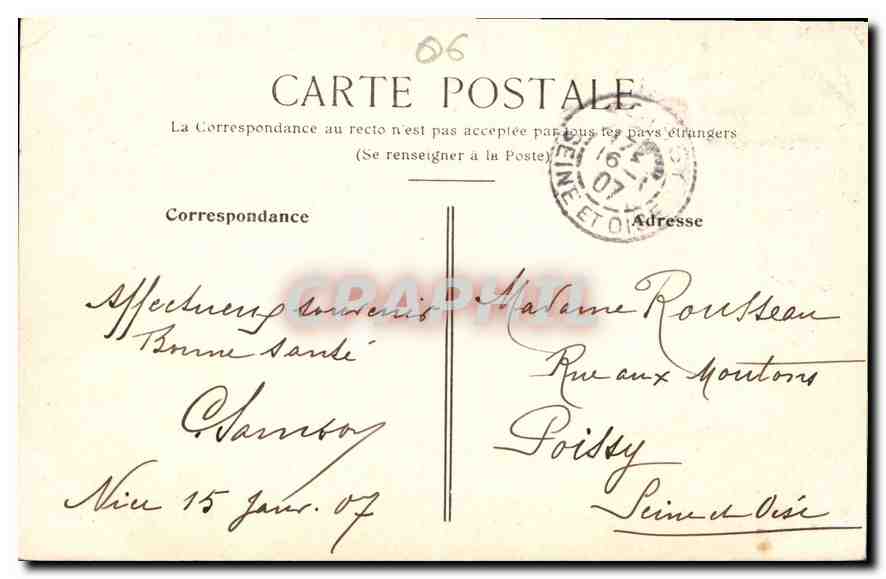 06
CARTE POSTALE
La Correspondance au recto n'est pas acceptée par tous les pays étrangers
(Se renseigner à la Poste)
Correspondance
Adresse
16 -1
07
SEINE ET OISE
CPAPHIL
Affectueux souvenir
Bonne santé
Nice 15 Janv. 07
Madame Rousseau
Rue aux Moutons
Poissy
Seine et Oise